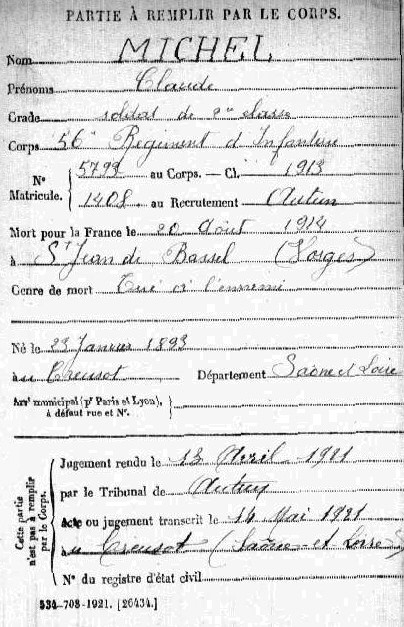 PARTIE À REMPLIR PAR LE CORPS.
Nom MICHEL
Prénoms Claude
Grade soldat de 2me classe
Corps 56e Régiment d'Infanterie
N° Matricule. { 5799 au Corps. — Cl. 1913
1408 au Recrutement Autun
Mort pour la France le 20 Août 1914
à St Jean de Bassel (Vosges)
Genre de mort Tué à l'ennemi
Né le 23 Janvier 1893
au Creusot Département Saône et Loire
Arrt municipal (pr Paris et Lyon), à défaut rue et N°.
Cette partie n'est pas à remplir par le Corps.
Jugement rendu le 13 Avril 1921
par le Tribunal de Autun
Acte ou jugement transcrit le 14 Mai 1921
au Creusot (Saône-et-Loire)
N° du registre d'état civil
534-708-1921. [26434.]